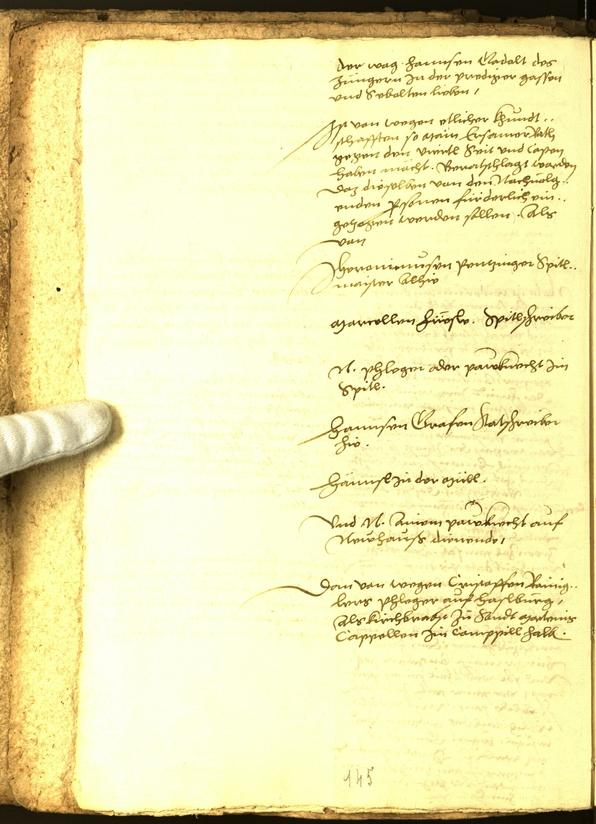 der wag. Hannsen Gadolt des
Jüngern In der prediger gassen
vnd Sebolten lieben,
Ist von wegen etlicher khundt..
schafften so ain Ersamer Rath
gegen den viertl Seit vnd Capen
haben mächt. Beratschlagt worden
das dieselben von den Nachuolg..
enden psonen fürderlich ein..
getzogen werden sollen. Als
von
Jheronimusen pentzinger Spitl..
maister Alhie
Marcellen Spitlschreiber
N. phleger oder pawknecht Im
Spitl.
Hannsen Grafen Ratschreiber
hie.
Hännsl In der Müll.
Vnd N. Ainem pawknecht auf
Newhauss dienende,
Dan von wegen Cristoffen
phleger auf Haslburg,
Als kirchbrabst Zu Sandt Marteins
Cappellen Zu Camppill halb.
145